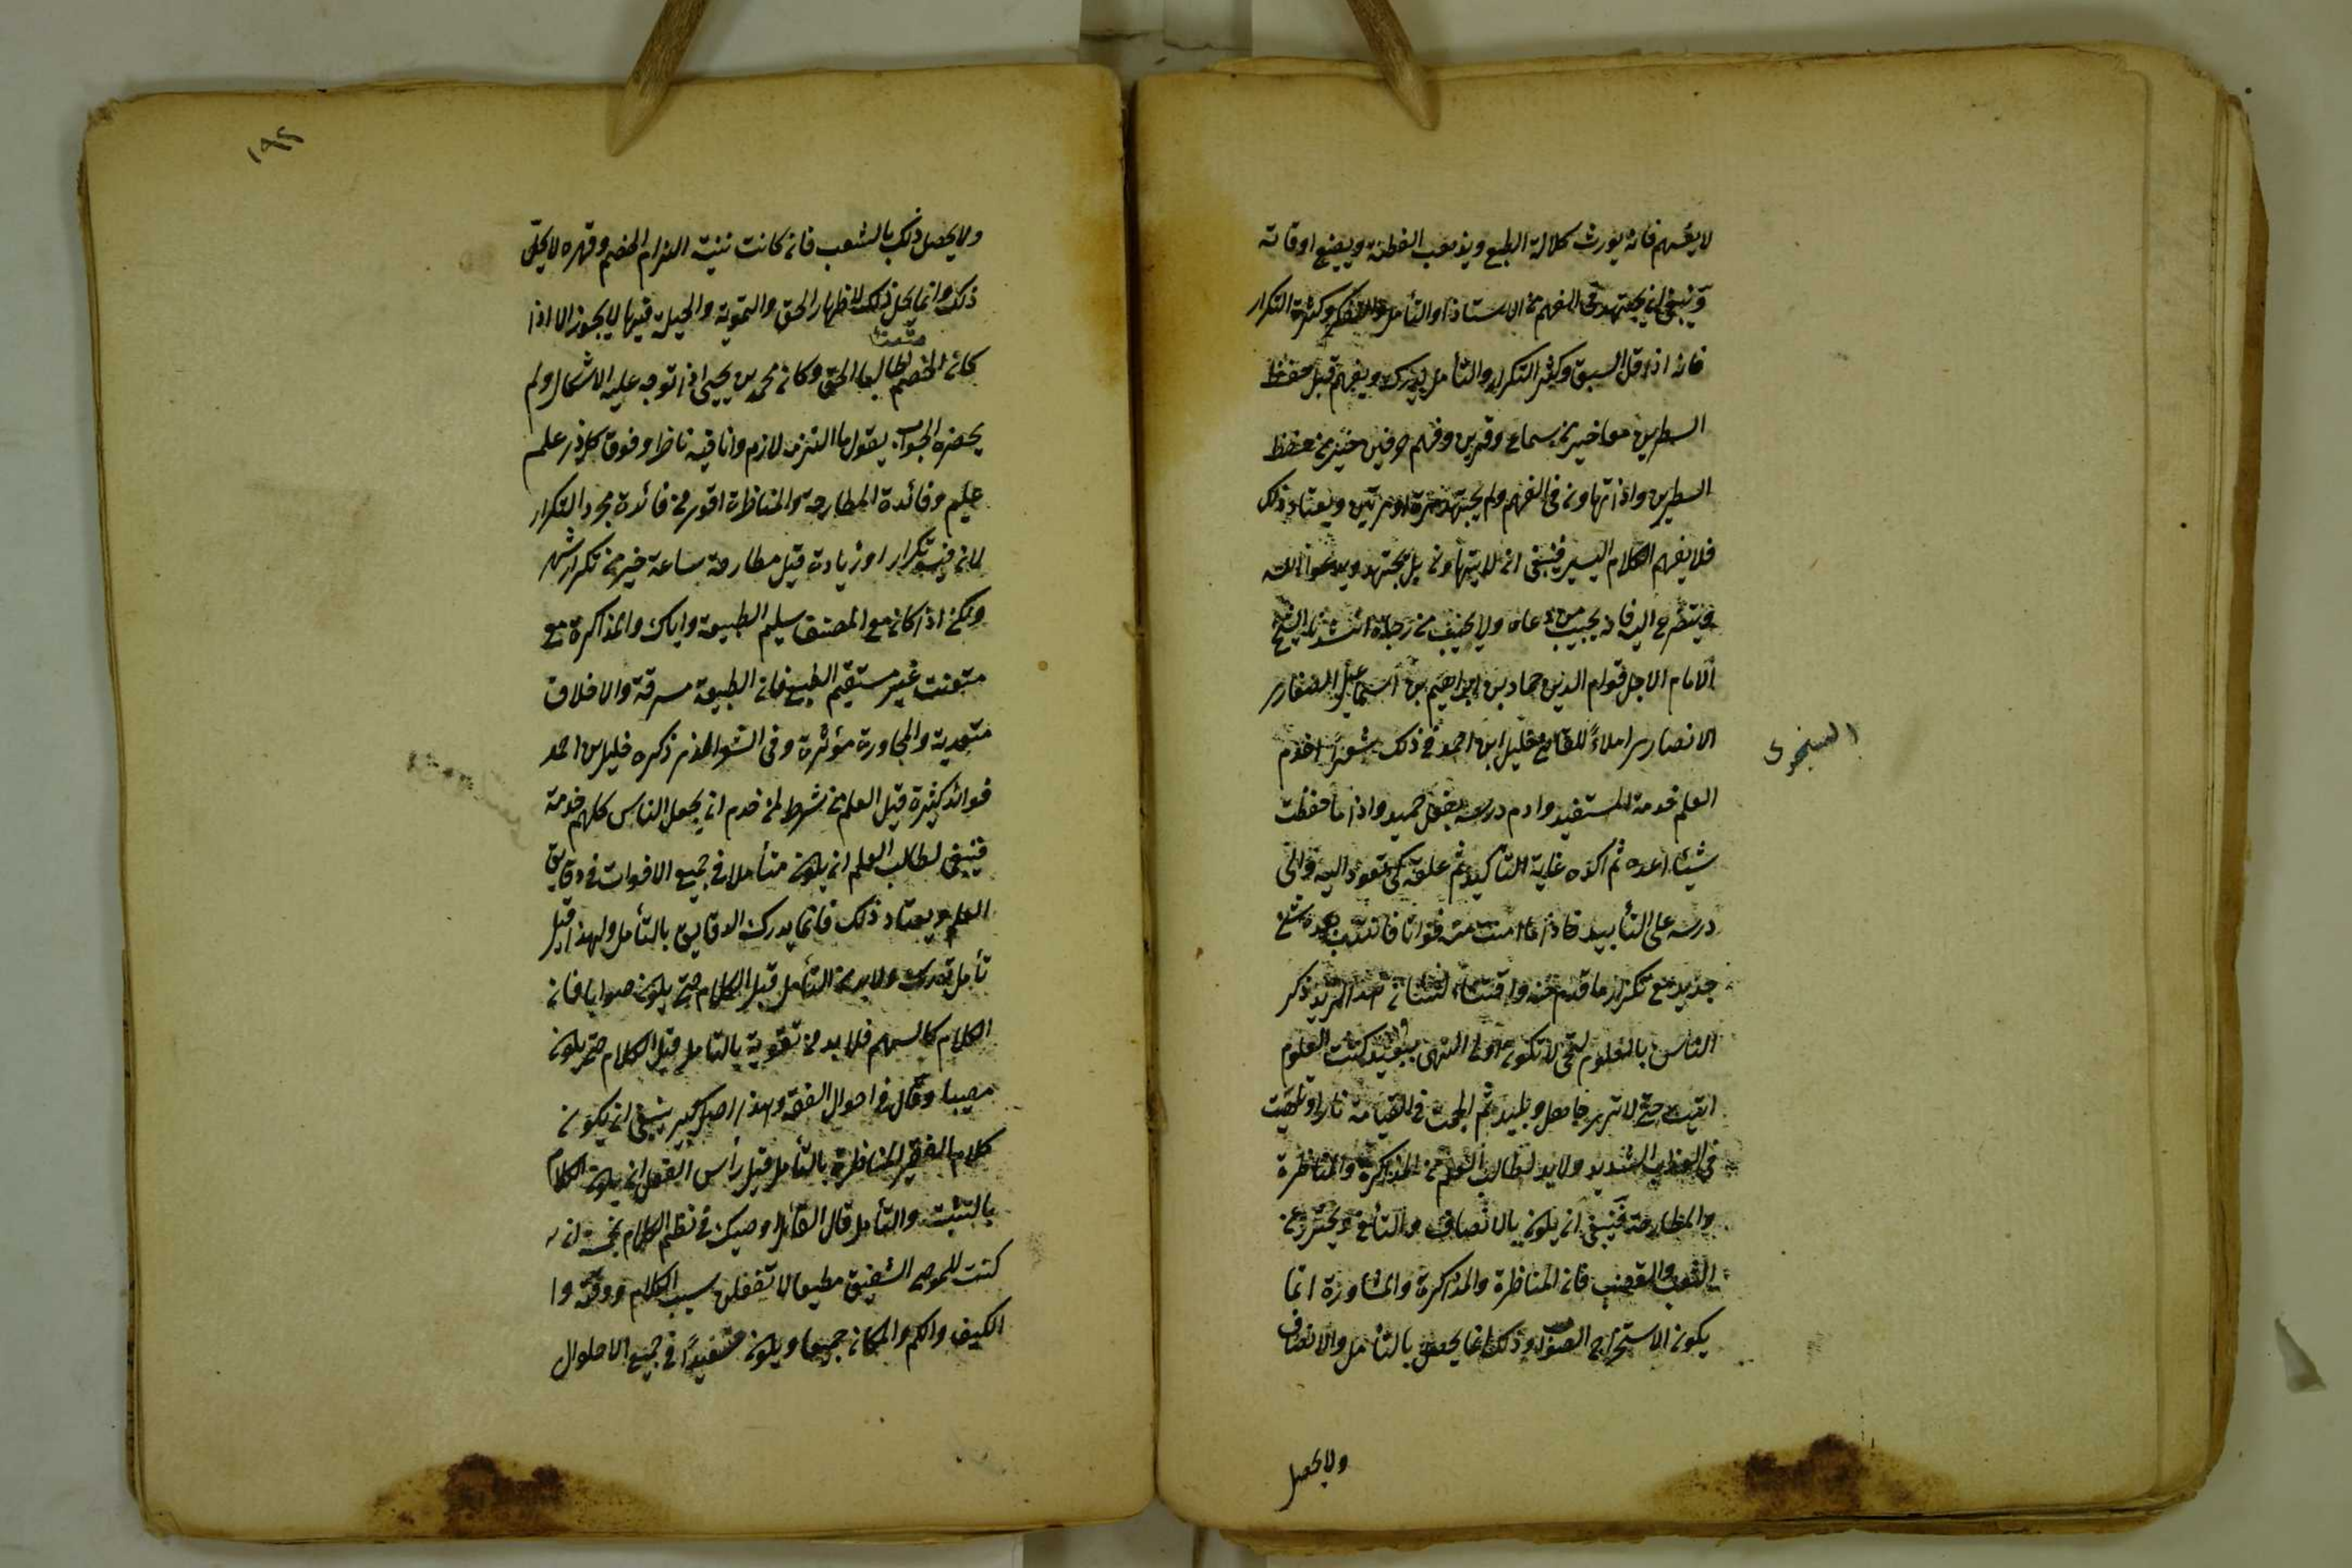 لا يفهم فانه يورث كلالة الطبع ويذهب الفطنة ويضيع اوقاته
وينبغي ان يجتهد في الفهم من الاستاذ او التأمل والتفكر وكثرة التكرار
فانه اذا قل السبق وكثر التكرار والتأمل يدرك ويفهم قيل حفظ
السطرين معا خير من سماع وقرين وفهم حرفين خير من حفظ
السطرين واذا تهاون في الفهم ولم يجتهد مرة او مرتين ويعتاد ذلك
فلا يفهم الكلام اليسير فينبغي ان لا يتهاون بل يجتهد ويدعو الله
ويتضرع اليه فانه يجيب من دعاه ولا يخيب من رجاه انشدنا الشيخ
الامام الاجل قوام الدين حماد بن ابراهيم بن اسماعيل الصفار
الانصاري املاءً للقاضي خليل ابن احمد في ذلك شعرًا اخدم
السنجرى
العلم خدمة المستفيد وادم درسه بفعل حميد واذا ما حفظت
شيئا اعده ثم اكده غاية التأكيد ثم علقه كى تعود اليه والى
درسه على التأبيد فاذا ما امنت منه فواتا فانتدب بعده شئ
جديد مع تكرار ما تقدم منه واقتناء لشان هذا المزيد ذكر
الناس بالعلوم لتحى لا تكون من اولى النهى ببعيد كتمت العلوم
انسيت حتى لا ترى جاهل وبليد ثم الجمت في القيامة نارا وتلهبت
في العذاب الشديد ولا بد لطالب العلم من المذاكرة والمناظرة
والمطارحة فينبغي ان يكون بالانصاف والتأنى ويحترز عن
الشغب والغضب فان المناظرة والمذاكرة والمشاورة انما
يكون لاستخراج الصواب وذلك انما يحصل بالتأمل والانصاف
ولا يحصل
١٩٢
ولا يحصل ذلك بالشغب فان كانت نيته الزام الخصم وقهره لا يحل
ذلك وانما يحل ذلك لاظهار الحق والتموية والحيلة فيها لا يجوز الا اذا
متعنتا
كان الخصم لا طالبا الحق وكان محمد بن يحيى اذا توجه عليه الاشكال ولم
يحضره الجواب يقول ما التزمه لازم وانا فيه ناظر وفوق كل ذى علم
عليم وفائدة المطارحة والمناظرة اقوى من فائدة مجرد التكرار
لان فيه تكرار او زيادة قيل مطارحة ساعة خير من تكرار شهر
ولكن اذا كان مع المصنف سليم الطبيعة واياك والمذاكرة مع
متعنت غير مستقيم الطبع فان الطبيعة مسرقة والاخلاق
متعدية والمجاورة مؤثرة وفى الشعر الذى ذكره خليل بن احمد
فوائد كثيرة قيل العلم من شرطه لمن خدم ان يجعل الناس كلهم خدمة
فينبغي لطالب العلم ان يكون متأملا في جميع الاقوات في دقايق
العلم ويعتاد ذلك فانما يدرك الدقايق بالتأمل ولهذا قيل
تأمل تدرك ولا بد من التأمل قبل الكلام حتى يكون صوابا فان
الكلام كالسهم فلا بد من تقويمة بالتأمل قبل الكلام حتى يكون
مصيبا وقال في اصول الفقه وهذا اصل كبير ينبغي ان يكون
كلام الفقيه المناظر بالتأمل قيل رأس العقل ان يكون الكلام
بالتثبت والتأمل قال القائل اوصيك في نظم الكلام بخمسة ان
كنت للموصى الشفيق مطيعا لا تغفلن سبب الكلام ووقته وا
الكيف والكم والمكان جميعا ويكون مستفيدًا في جميع الاحلوال